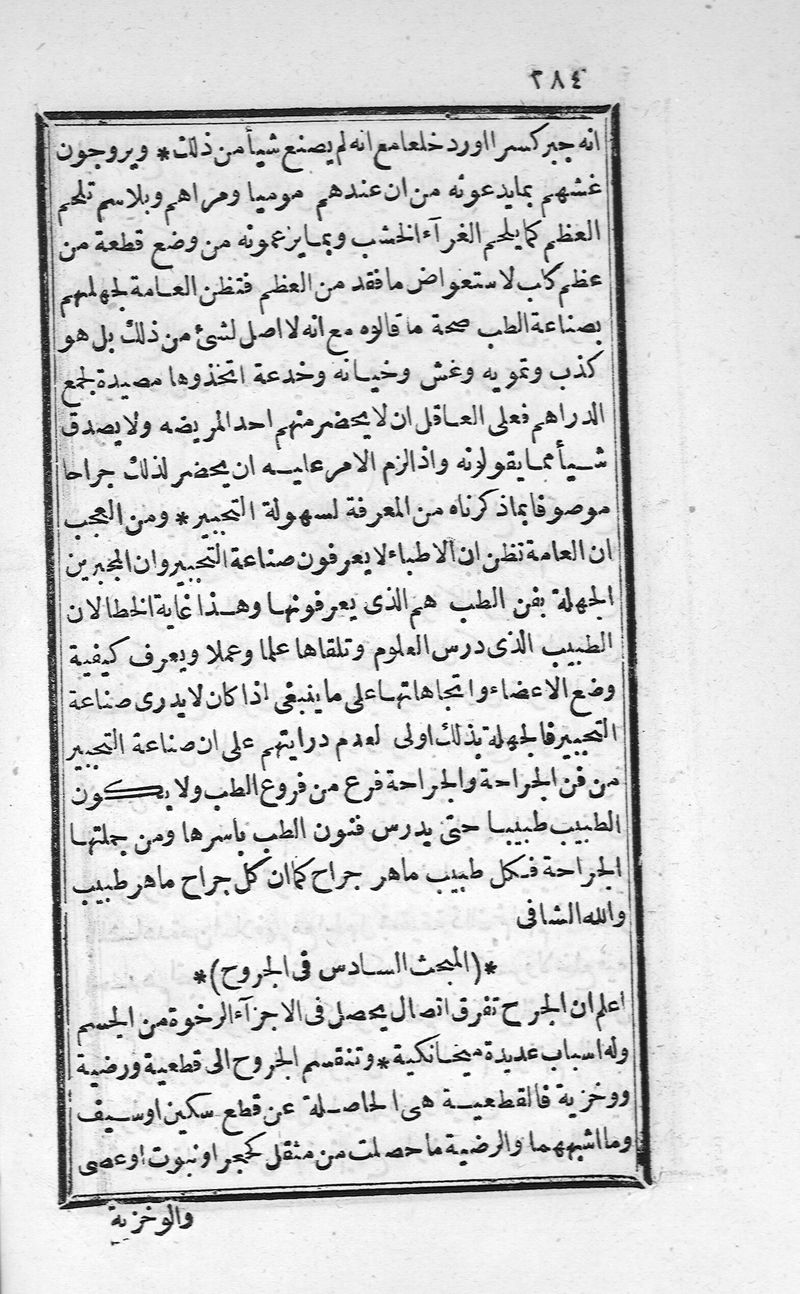 ٢٨٤
انه جبر كسرا اورد خلعا مع انه لم يصنع شيأ من ذلك * ويروجون
غشهم بما يدعونه من ان عندهم موميا ومراهم وبلاسم تلحم
العظم كما يلحم الغرآء الخشب وبما يزعمونه من وضع قطعة من
عظم كلب لاستعواض ما فقد من العظم فتظن العامة لجهلهم
بصناعة الطب صحة ما قالوه مع انه لا اصل لشئ من ذلك بل هو
كذب وتمويه وغش وخيانه وخدعة اتخذوها مصيدة لجمع
الدراهم فعلى العاقل ان لا يحضر منهم احد المريضه ولا يصدق
شيأ مما يقولونه واذا لزم الامر عليه ان يحضر لذلك جراحا
موصوفا بما ذكرناه من المعرفة لسهولة التجبير * ومن العجب
ان العامة تظن ان الاطباء لا يعرفون صناعة التجبير وان المجبرين
الجهلة بفن الطب هم الذى يعرفونها وهذا غاية الخطا لان
الطبيب الذى درس العلوم وتلقاها علما وعملا ويعرف كيفية
وضع الاعضاء واتجاهاتها على ما ينبغى اذا كان لا يدرى صناعة
التجبير فالجهلة بذلك اولى لعدم درايتهم على ان صناعة التجبير
من فن الجراحة والجراحة فرع من فروع الطب ولا يكون
الطبيب طبيبا حتى يدرس فنون الطب باسرها ومن جملتها
الجراحة فكل طبيب ماهر جراح كما ان كل جراح ماهر طبيب
والله الشافى
*(المبحث السادس فى الجروح)*
اعلم ان الجرح تفرق اتصال يحصل فى الاجزآء الرخوة من الجسم
وله اسباب عديدة ميخانكية * وتنقسم الجروح الى قطعية ورضية
ووخزية فالقطعية هى الحاصلة عن قطع سكين اوسيف
وما اشبههما والرضية ما حصلت من مثقل كحجر او نبوت اوعصى
والوخزية